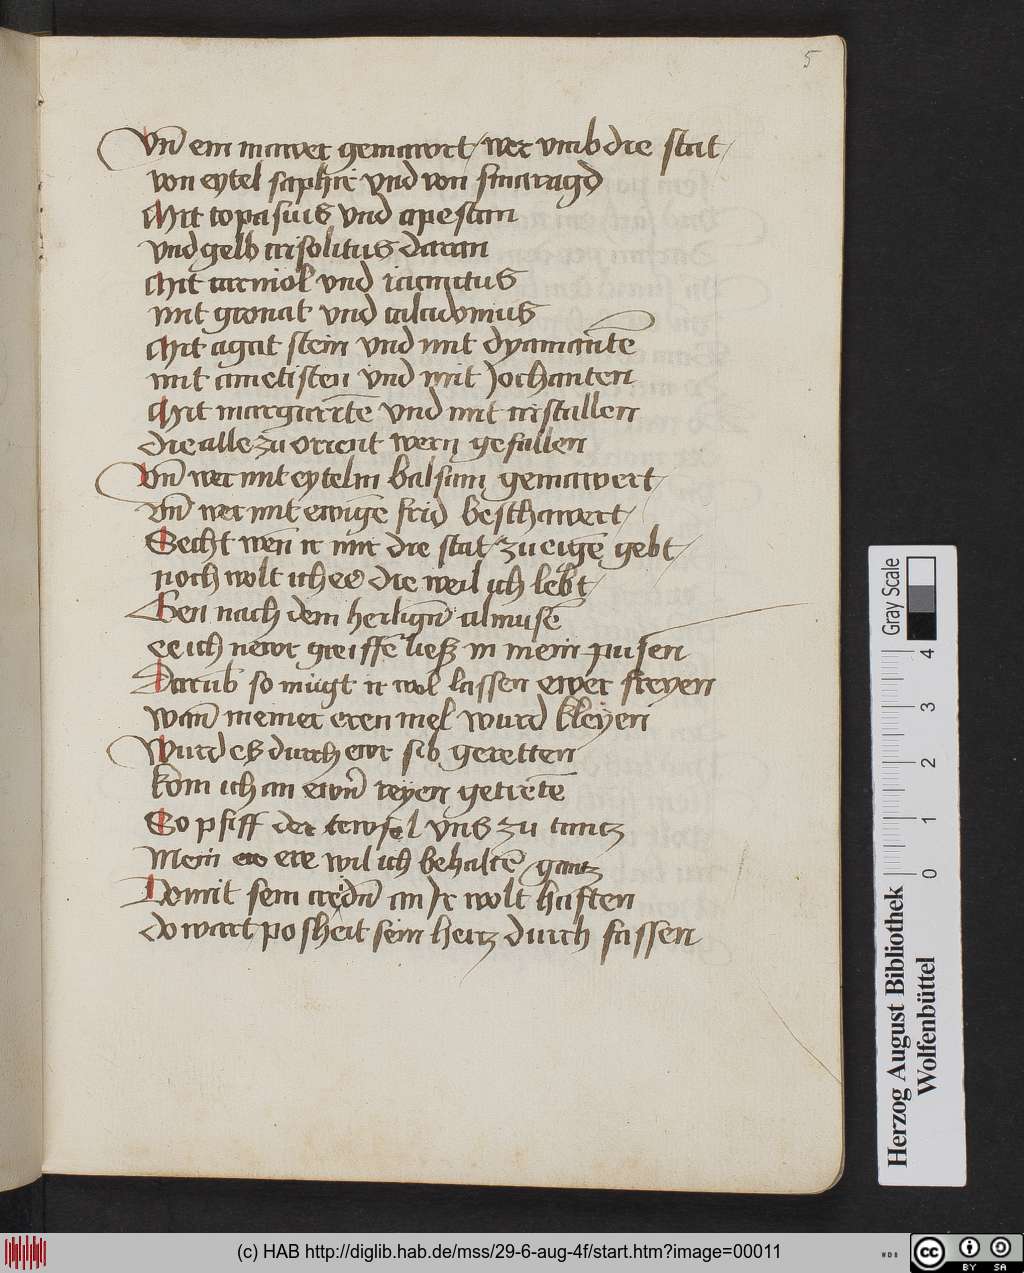 5
Vn̄ ein mawer gemawort / wer vmb die stat /
von eytel saphir vnd von smaragd
Mit topasius vnd apestan
vnd gelb crisolitus daran
Mit carniol vnd iacinctus
mit gronat vnd calcidonius
Mit agat stein vnd mit dyamantē
mit ametisten vnd mit Jochanten
Mit margaritē vnd mit cristallen
die alle zu orient wern gefallen
Vn̄ wer mit eytelm balsam gemawert /
vn̄ wer mit ewigē frid beschawert /
Secht wen̄ ir mir die stat / zu eigē gebt /
noch wolt ich ee die weil ich lebt /
Gen nach dem heilign̄ almusē
ee ich newr greiffē ließ in mein pusen
Darūb so mügt ir wol lassen ewer freyen
wan̄ meiner eren mel wurd kleyen
Wurd eß durch ewr sib geretten
kom ich an ewrn̄ reyen getretē
So pfiff der tewfel vns zu tantz
Mein ere wil ich behaltē gantz
Domit sein redn̄ an Ir wolt haften
do wart posheit sein hertz durch fassen
Herzog August Bibliothek
Wolfenbüttel
0 1 2 3 4
Gray Scale
(c) HAB http://diglib.hab.de/mss/29-6-aug-4f/start.htm?image=00011
WDB
cc BY SA